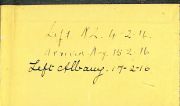 Left N.Z. 4-2-16.
arrived Alby 15-2-16
Left Albany. 17-2-16